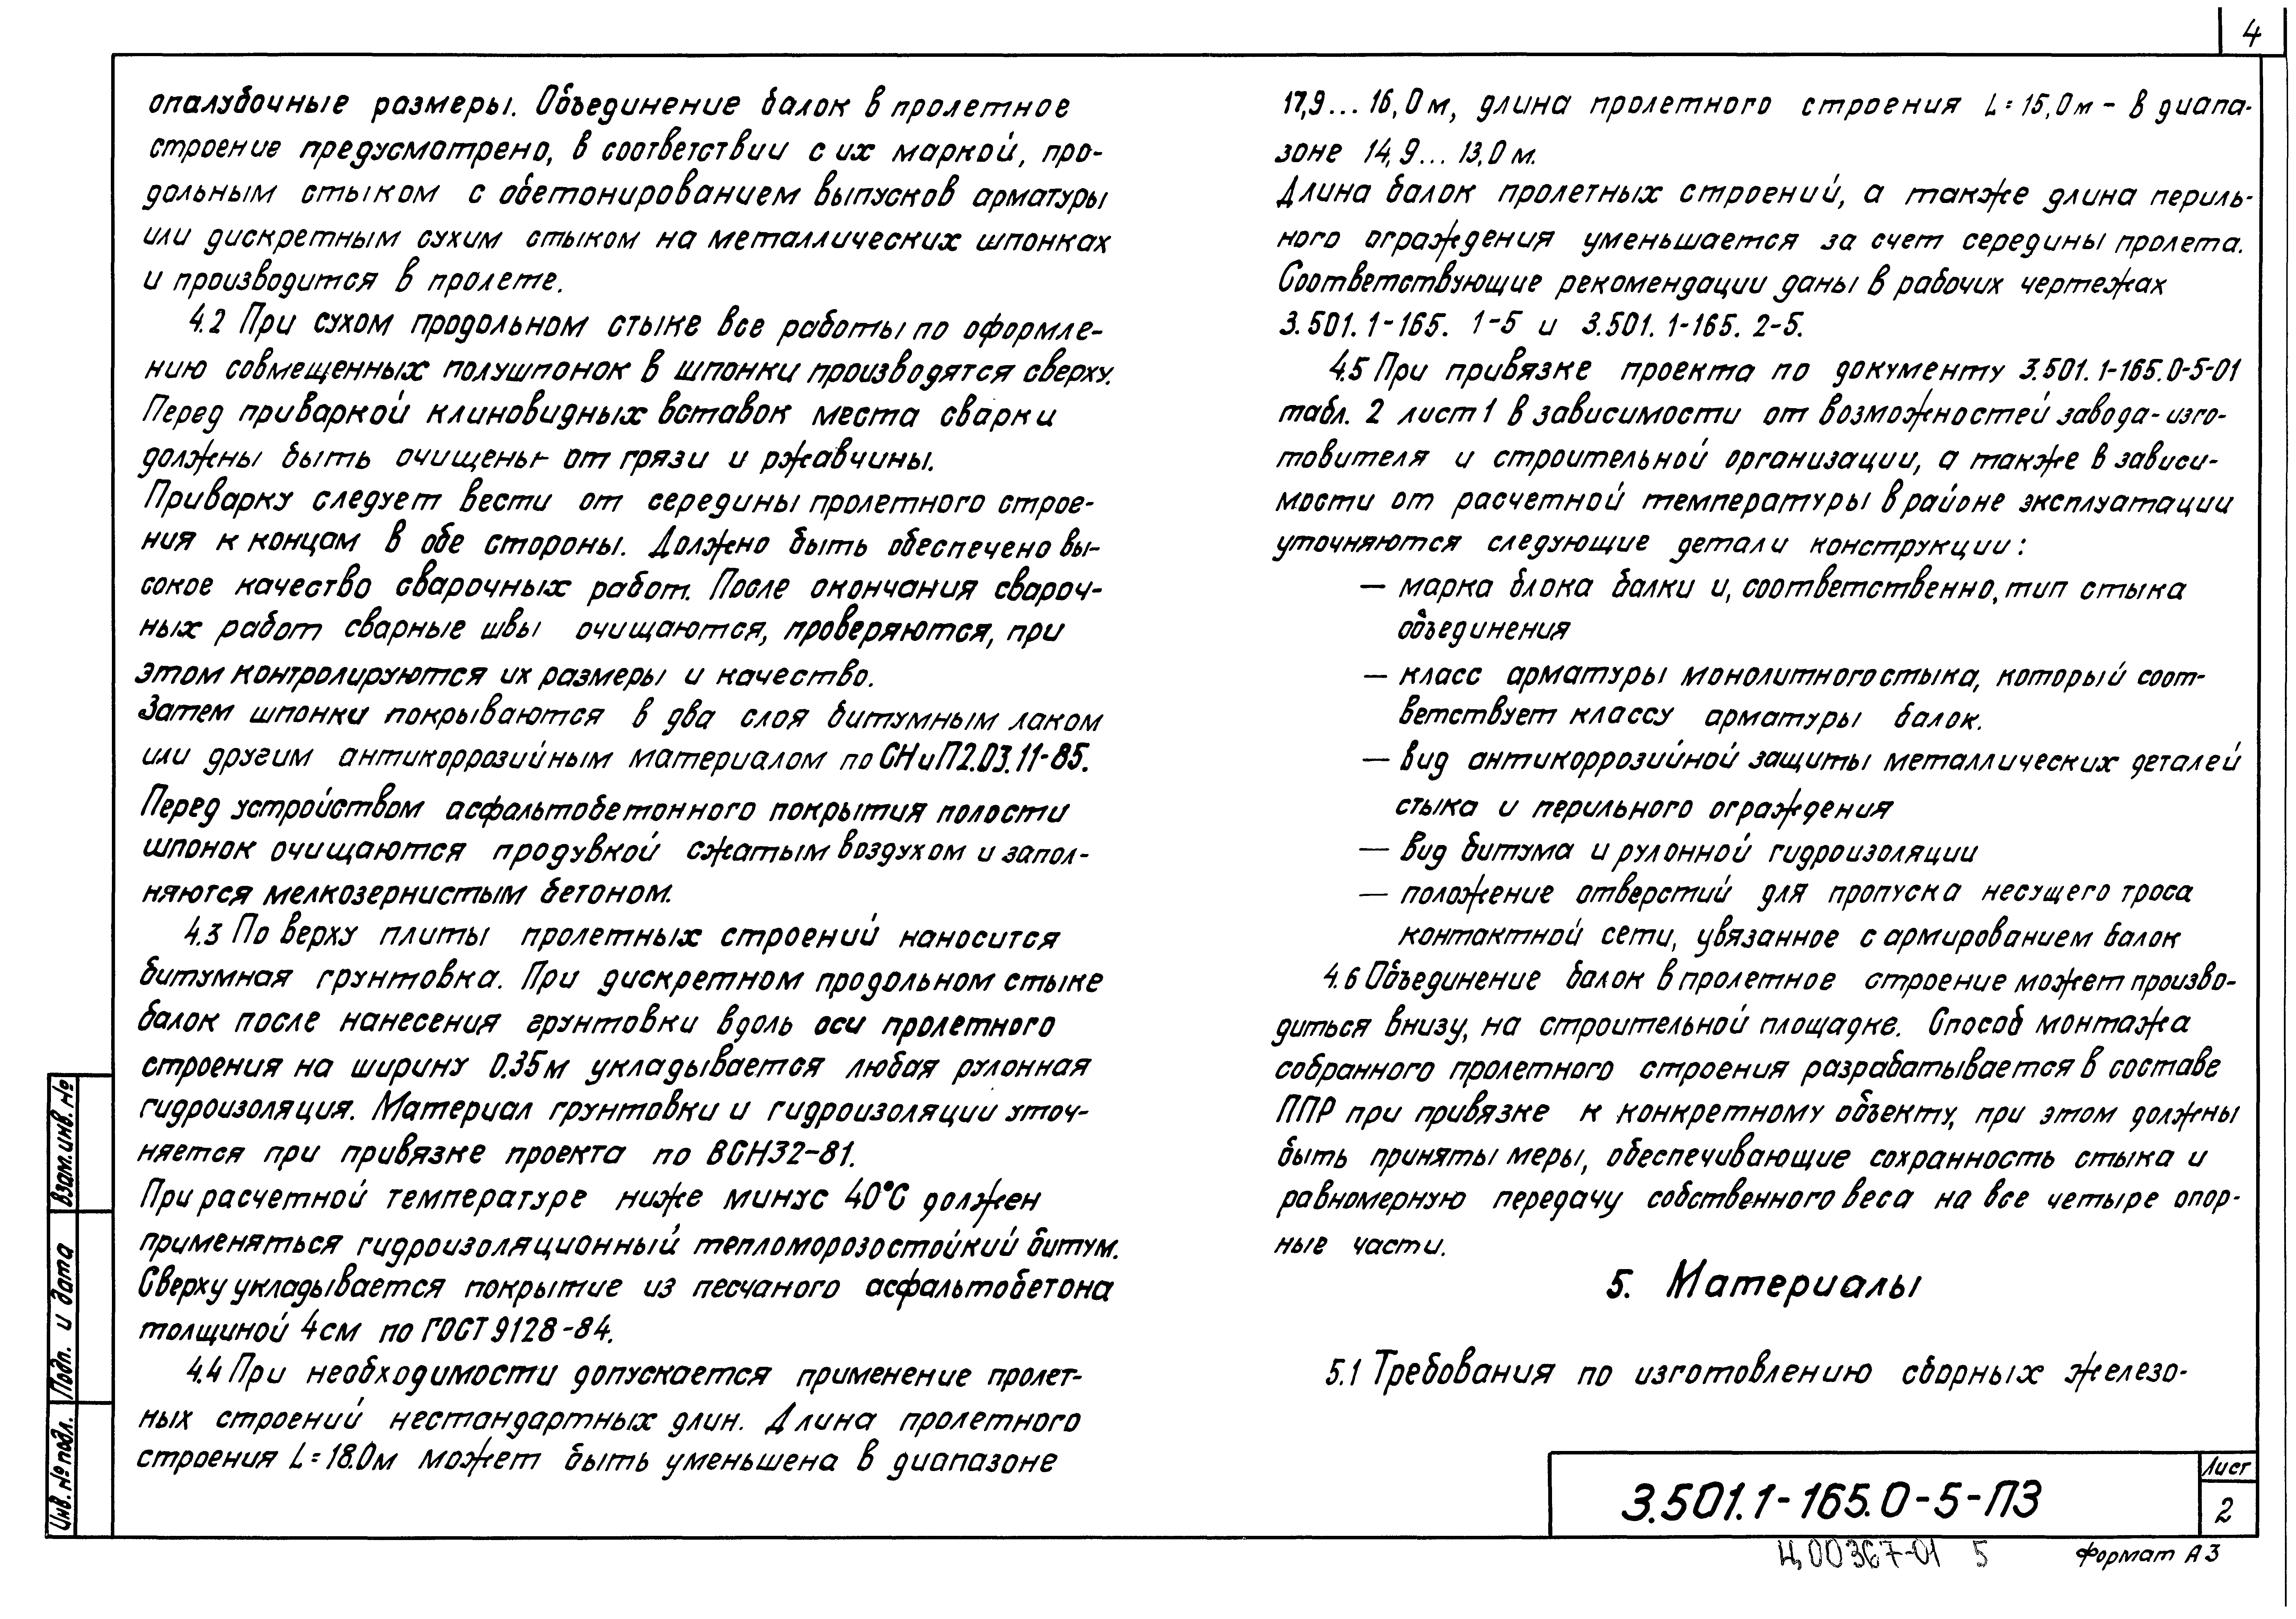 4
опалубочные размеры. Объединение балок в пролетное
строение предусмотрено, в соответствии с их маркой, про-
дольным стыком с обетонированием выпусков арматуры
или дискретным сухим стыком на металлических шпонках
и производится в пролете.
4.2 При сухом продольном стыке все работы по оформле-
нию совмещенных полушпонок в шпонки производятся сверху.
Перед приваркой клиновидных вставок места сварки
должны быть очищены от грязи и ржавчины.
Приварку следует вести от середины пролетного строе-
ния к концам в обе стороны. Должно быть обеспечено вы-
сокое качество сварочных работ. После окончания свароч-
ных работ сварные швы очищаются, проверяются, при
этом контролируются их размеры и качество.
Затем шпонки покрываются в два слоя битумным лаком
или другим антикоррозийным материалом по СНиП2.03.11-85.
Перед устройством асфальтобетонного покрытия полости
шпонок очищаются продувкой сжатым воздухом и запол-
няются мелкозернистым бетоном.
4.3 По верху плиты пролетных строений наносится
битумная грунтовка. При дискретном продольном стыке
балок после нанесения грунтовки вдоль оси пролетного
строения на ширину 0.35м укладывается любая рулонная
гидроизоляция. Материал грунтовки и гидроизоляции уточ-
няется при привязке проекта по ВСН32-81.
При расчетной температуре ниже минус 40°С должен
применяться гидроизоляционный тепломорозостойкий битум.
Сверху укладывается покрытие из песчаного асфальтобетона
толщиной 4см по ГОСТ 9128-84.
4.4 При необходимости допускается применение пролет-
ных строений нестандартных длин. Длина пролетного
строения L=18.0м может быть уменьшена в диапазоне
17,9...16,0м, длина пролетного строения L=15,0м - в диапа-
зоне 14,9...13,0м.
Длина балок пролетных строений, а также длина периль-
ного ограждения уменьшается за счет середины пролета.
Соответствующие рекомендации даны в рабочих чертежах
3.501.1-165.1-5 и 3.501.1-165.2-5.
4.5 При привязке проекта по документу 3.501.1-165.0-5-01
табл. 2 лист 1 в зависимости от возможностей завода-изго-
товителя и строительной организации, а также в зависи-
мости от расчетной температуры в районе эксплуатации
уточняются следующие детали конструкции:
— марка блока балки и, соответственно, тип стыка
объединения
— класс арматуры монолитного стыка, который соот-
ветствует классу арматуры балок.
— вид антикоррозийной защиты металлических деталей
стыка и перильного ограждения
— вид битума и рулонной гидроизоляции
— положение отверстий для пропуска несущего троса
контактной сети, увязанное с армированием балок
4.6 Объединение балок в пролетное строение может произво-
диться внизу, на строительной площадке. Способ монтажа
собранного пролетного строения разрабатывается в составе
ППР при привязке к конкретному объекту, при этом должны
быть приняты меры, обеспечивающие сохранность стыка и
равномерную передачу собственного веса на все четыре опор-
ные части.
5. Материалы
5.1 Требования по изготовлению сборных железо-
Взам.инв.№
Подп. и дата
Инв.№подл.
3.501.1-165.0-5-ПЗ
Лист
2
Ц00367-01 5
Формат А3